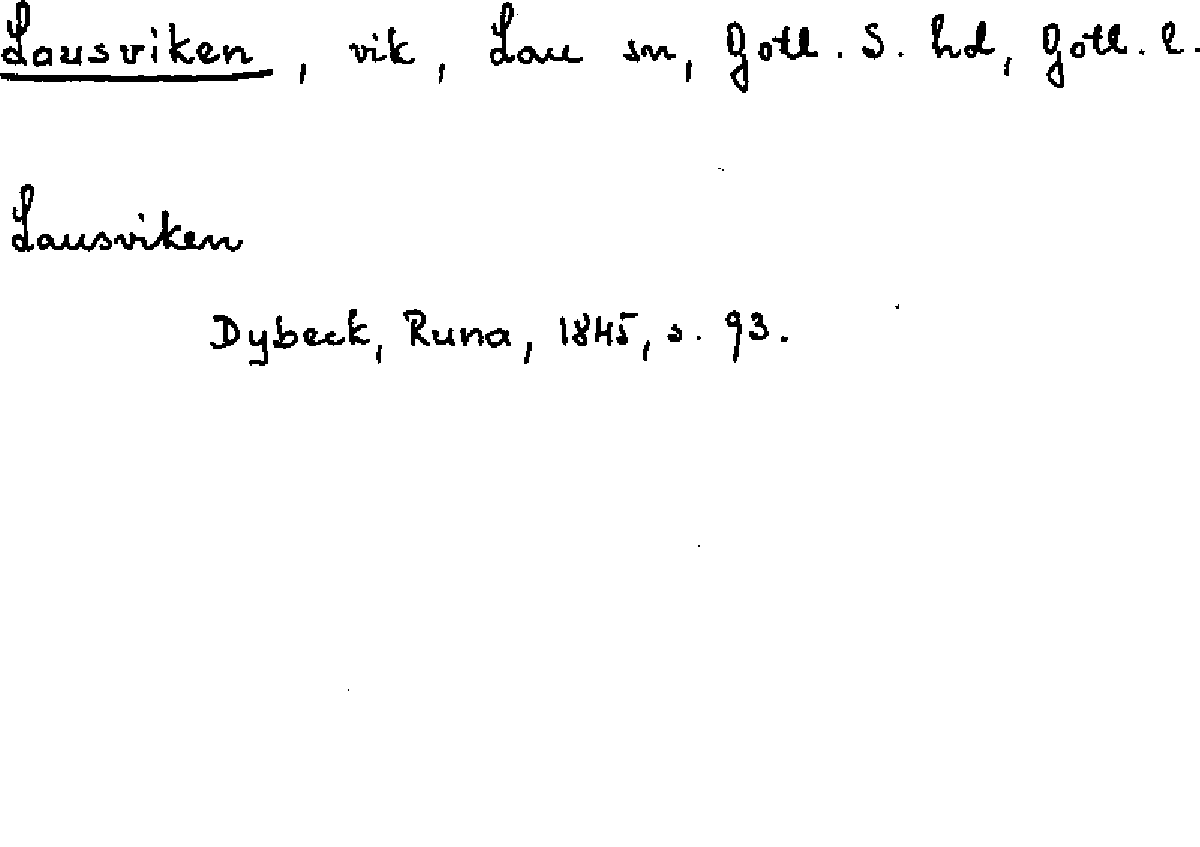 Lausviken, vik, Lau sn, Gotl. S. hd, Gotl. l.
Lausviken
Dybeck, Runa, 1845, s. 93.